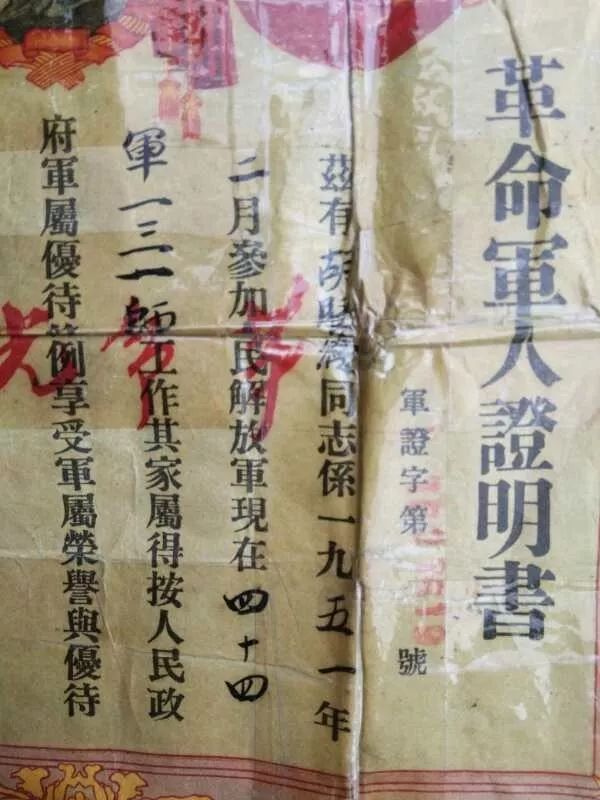 革命軍人證明書
軍證字第 號
茲有 同志係一九五一年
二月參加人民解放軍現在四十四
軍一三一師工作其家屬得按人民政
府軍屬優待條例享受軍屬榮譽與優待
光